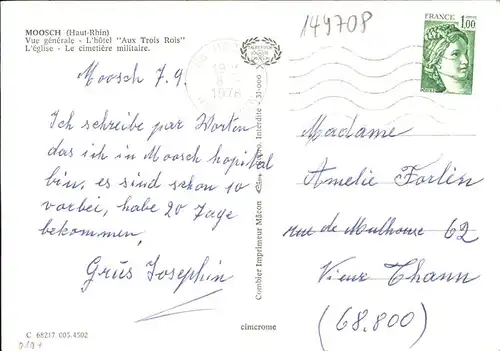 MOOSCH (Haut-Rhin)
Vue générale - L'hôtel "Aux Trois Rois"
L'église - Le cimetière militaire.
149708
FRANCE
1,00
1978
Moosch 7.9.
Ich schreibe par Worten
das ich in Moosch hopital
bin, es sind schon 10
vorbei, habe 20 Tage
bekommen,
Grüs Josephin
Combier Imprimeur Mâcon
Interdite - 31-000
Madame
Amelie Forlin
rue de Mulhouse 62
Vieux Thann
(68.800)
C 68217 005.4502
cimcrome